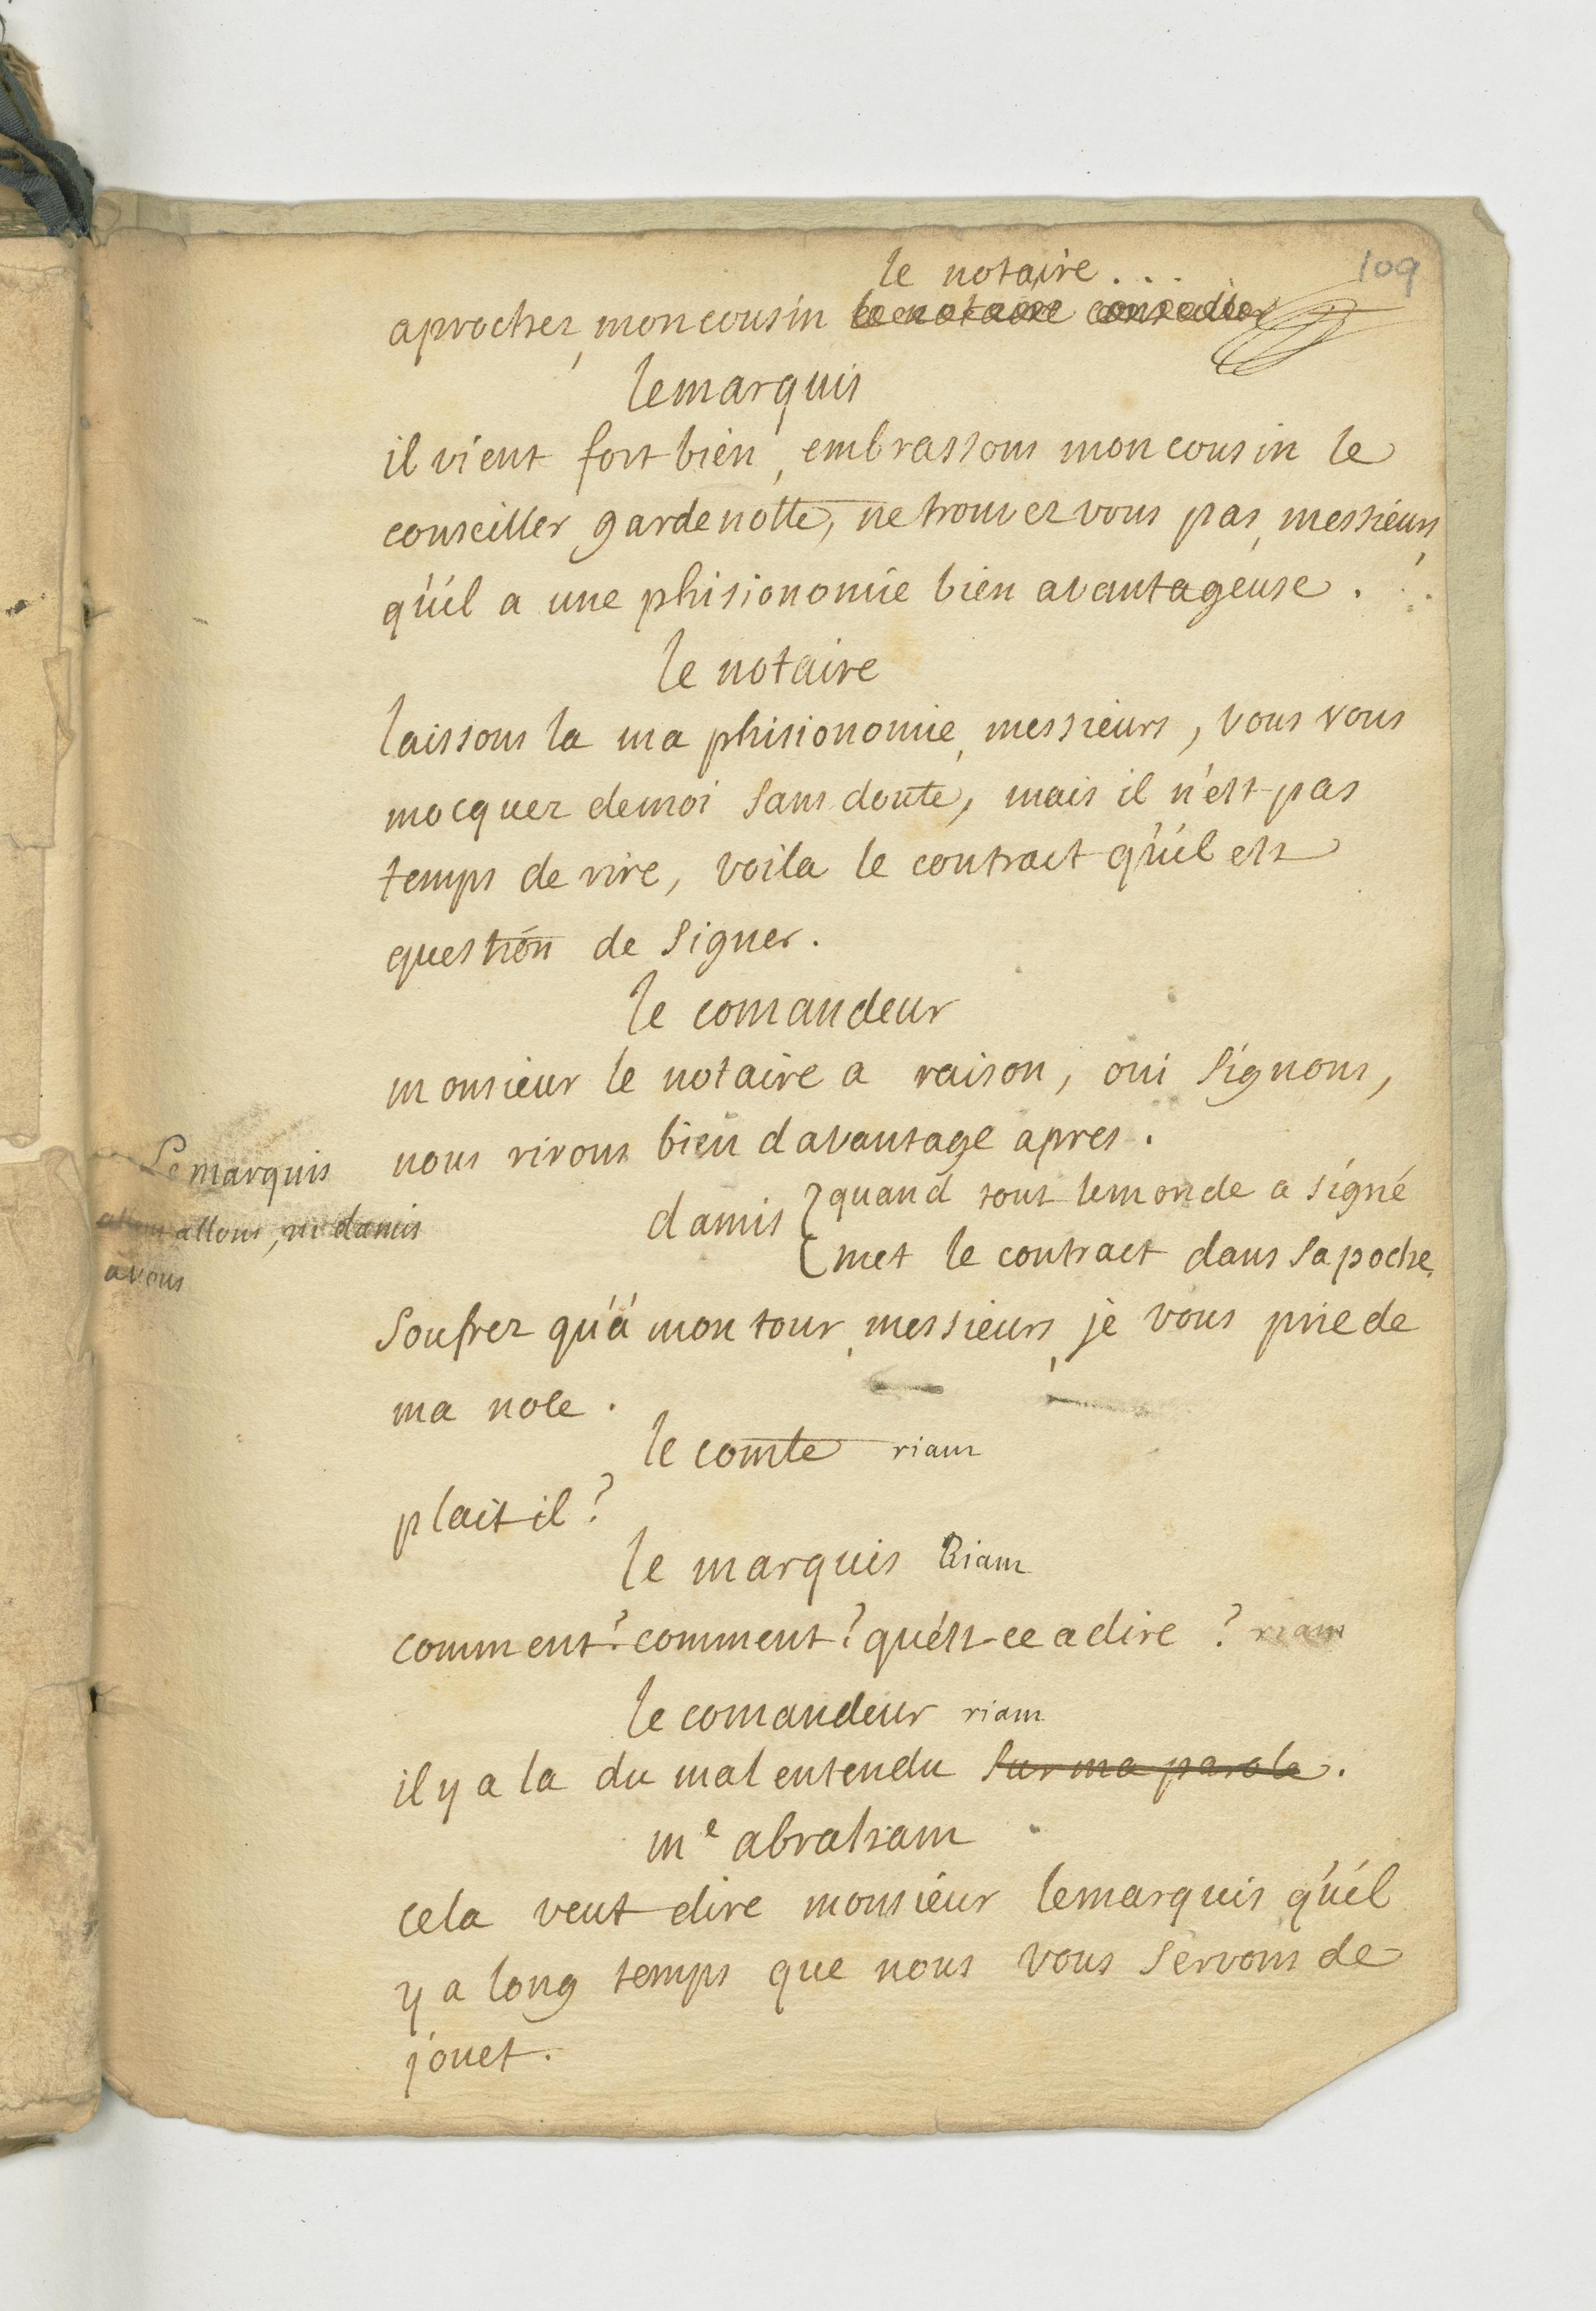 109
le notaire...
aprochez, mon cousin le notaire conseiller
lemarquis
il vient fort bien, embrassons mon cousin le
conseiller gardenotte, ne trouvez vous pas, messieurs,
qu'il a une phisionomie bien avantageuse.
le notaire
laissons la ma phisionomie, messieurs, vous vous
mocquez demoi sans doute, mais il n'est pas
temps de rire, voila le contract qu'il est
question de signer.
le comandeur
monsieur le notaire a raison, oui signons,
nous rirons bien davantage apres.
Le marquis
allons allons, m damis
a vous
damis { quand tout lemonde a signé
met le contract dans sa poche.
soufrez qu'à mon tour, messieurs, je vous prie de
ma nole.
le comte riant
plait il?
le marquis Riant
comment? comment? qu'est-ce a dire? riant
le comandeur riant
il y a la du mal entendu sur ma parole.
me abraham
cela veut dire monsieur lemarquis qu'il
y a long temps que nous vous servons de
jouet.